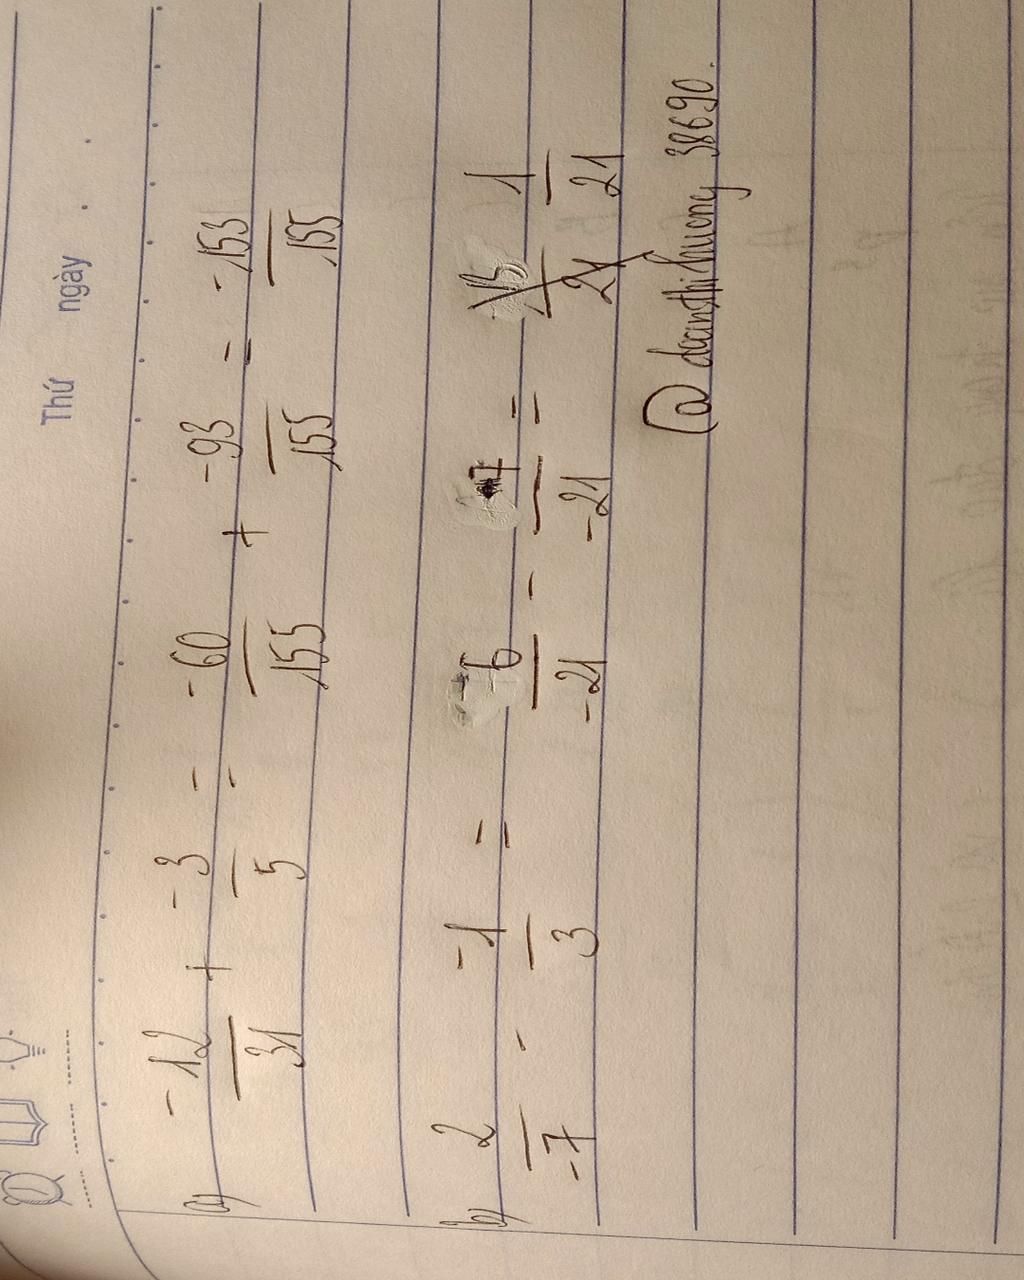 Thứ ngày
a) -12/31 + -3/5 = -60/155 + -93/155 = -153/155
b) 2/-7 - -1/3 = 6/-21 - 7/-21 = 1/21
@doanthihuong38690.